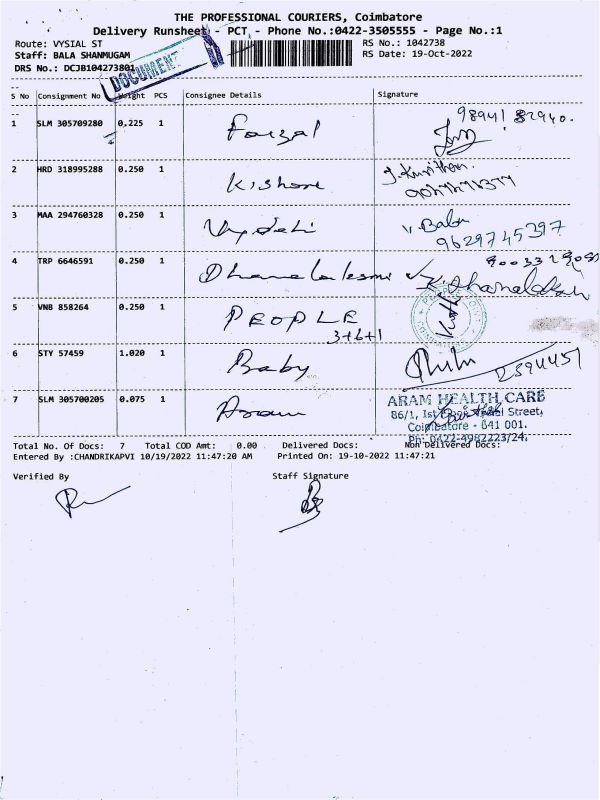 THE PROFESSIONAL COURIERS, Coimbatore
Delivery Runsheet - PCT - Phone No.:0422-3505555 - Page No.:1
Route: VYSIAL ST
RS No.: 1042738
Staff: BALA SHANMUGAM
RS Date: 19-Oct-2022
DRS No.: DCJB104273801
DOCUMENT
S No Consignment No Weight PCS Consignee Details Signature
9894182940.
1 SLM 305709280 0,225 1 Faizal
2 HRD 318995288 0.250 1 Kishore
3 MAA 294760328 0.250 1 V. Babu
9629745397
4 TRP 6646591 0.250 1 Dhanalakshmi
5 VNB 858264 0.250 1 PEOPLE
3+6+1
6 STY 57459 1.020 1 Baby
7 SLM 305700205 0.075 1 Aram
ARAM HEALTH CARE
86/1, Ist Street,
Coimbatore - 641 001.
Ph: 0422-4982223/24.
Total No. Of Docs: 7 Total COD Amt: 0.00 Delivered Docs: Non Delivered Docs:
Entered By :CHANDRIKAPVI 10/19/2022 11:47:20 AM Printed On: 19-10-2022 11:47:21
Verified By Staff Signature